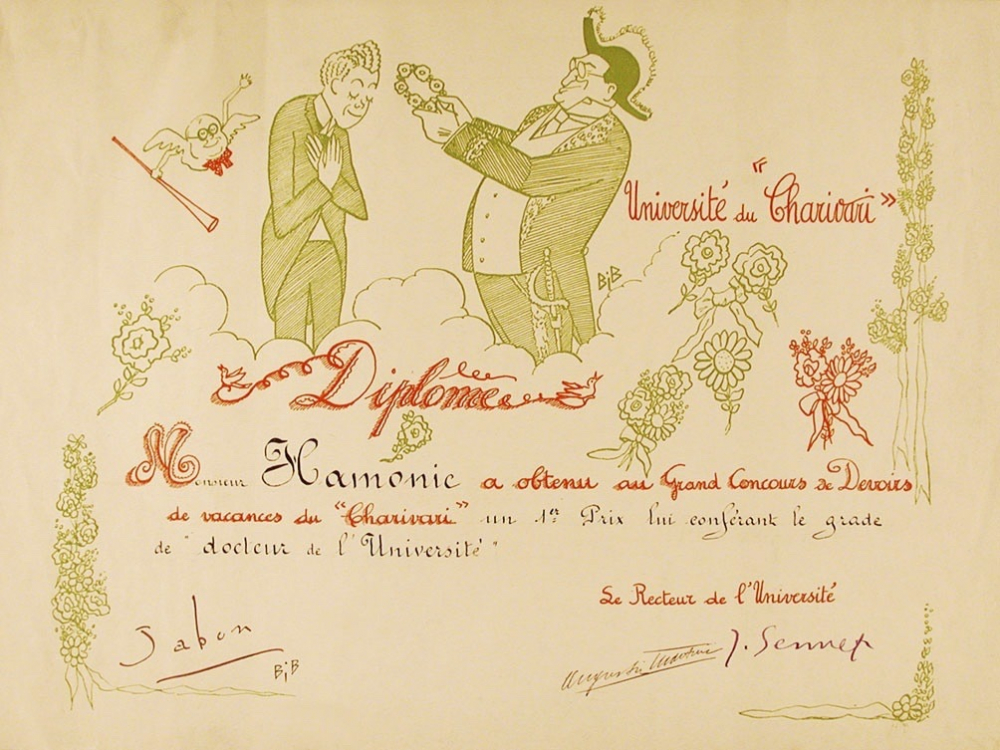 BiB
Université du "Charivari"
Diplôme
Monsieur Hamonic a obtenu au Grand Concours de Devoirs
de vacances du "Charivari" un 1er Prix lui conférant le grade
de "docteur de l'Université"
Le Recteur de l'Université
Jabon
BiB
J. Sennep